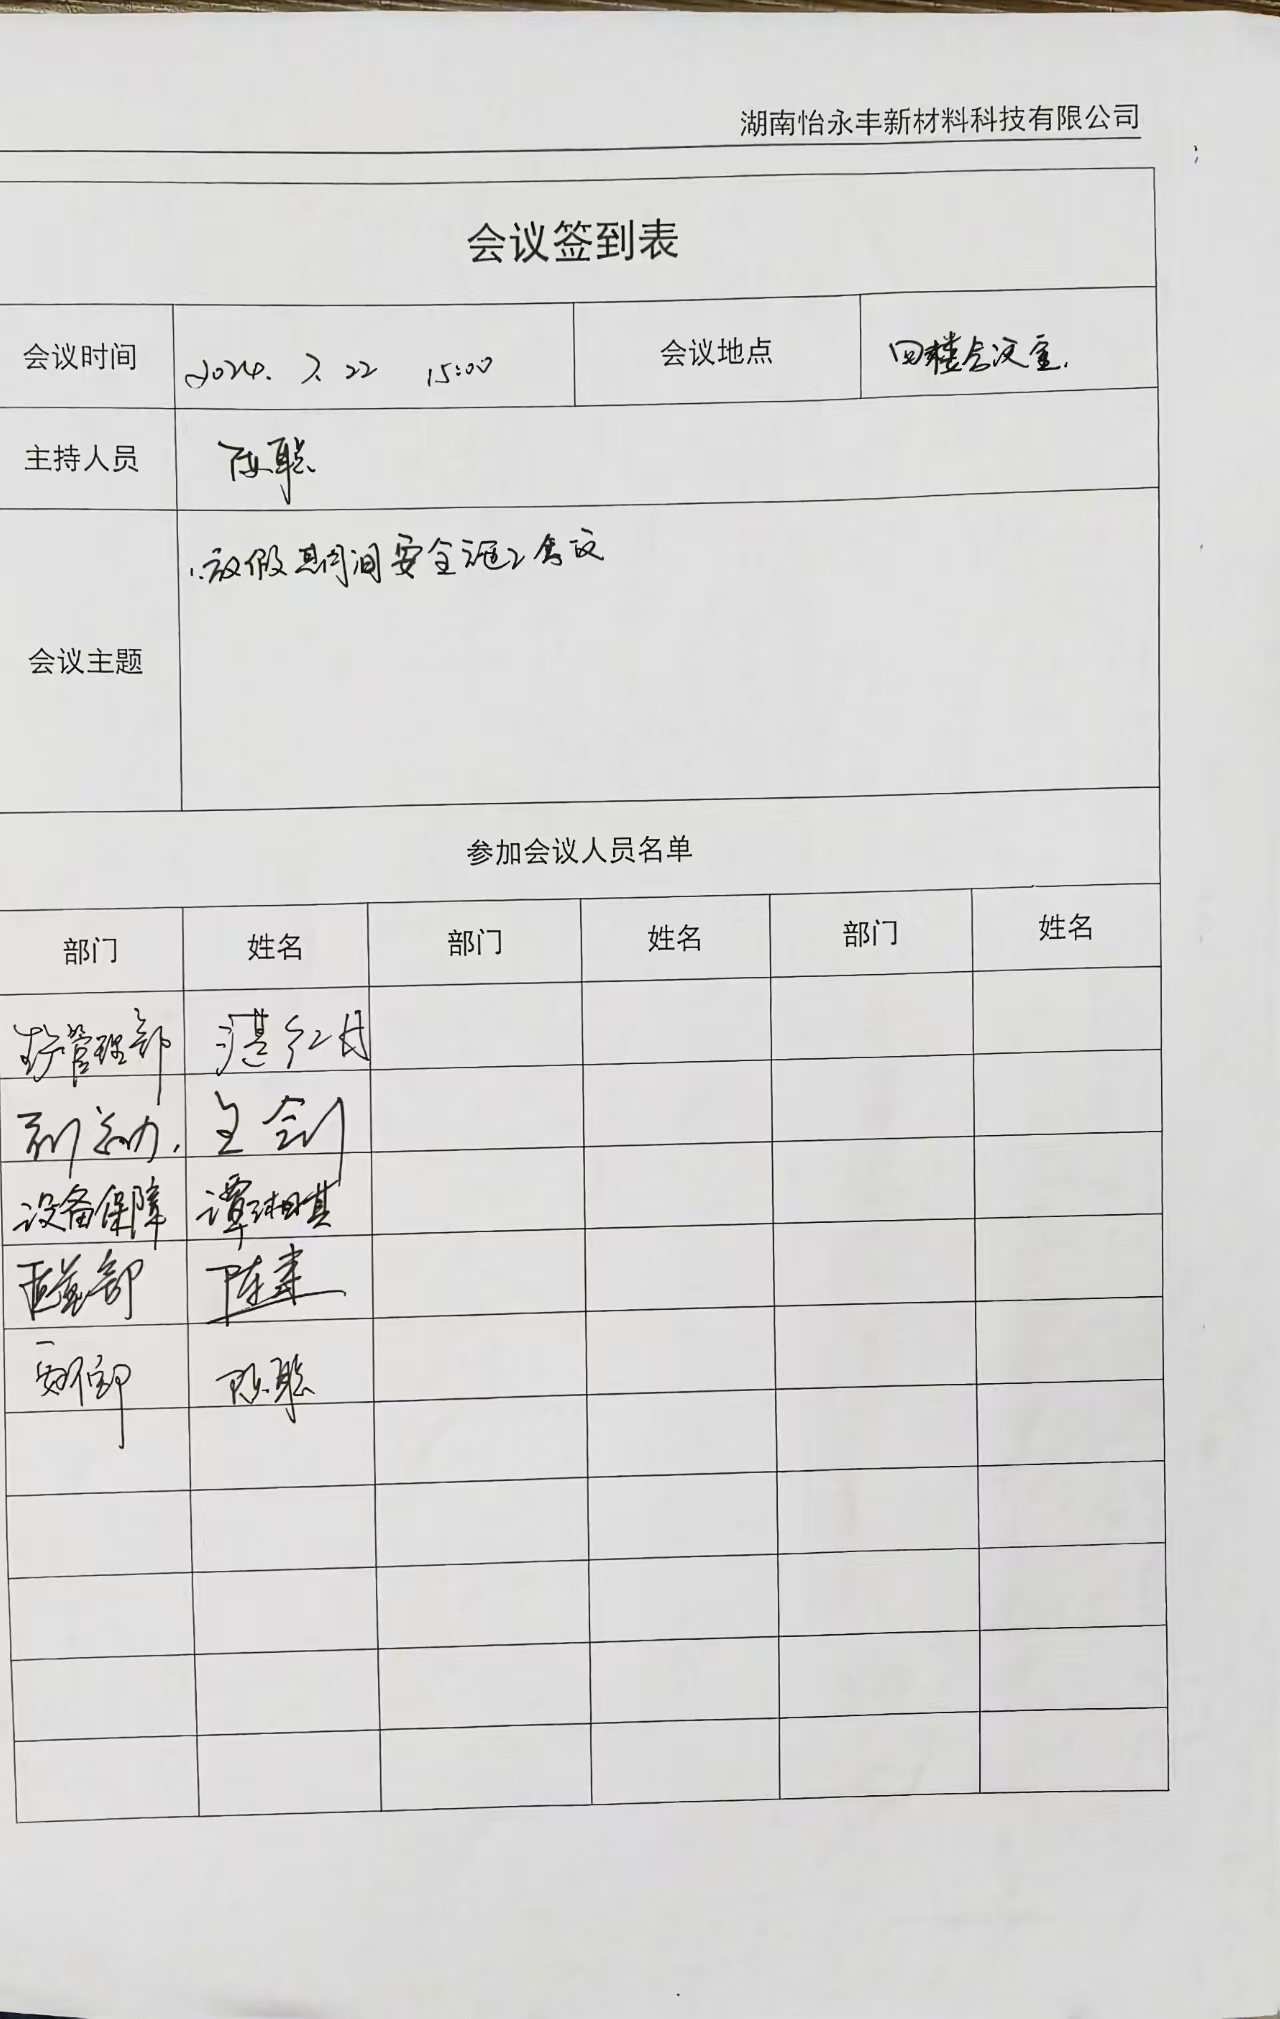 湖南怡永丰新材料科技有限公司
会议签到表
会议时间 2024.7.22 15:00 会议地点 四楼会议室.
主持人员 陈聪
会议主题 1.放假期间安全施工会议
参加会议人员名单
部门 姓名 部门 姓名 部门 姓名
生产管理部 湛红月
王剑
设备保障 谭湘琪
部 陈幸
陈聪